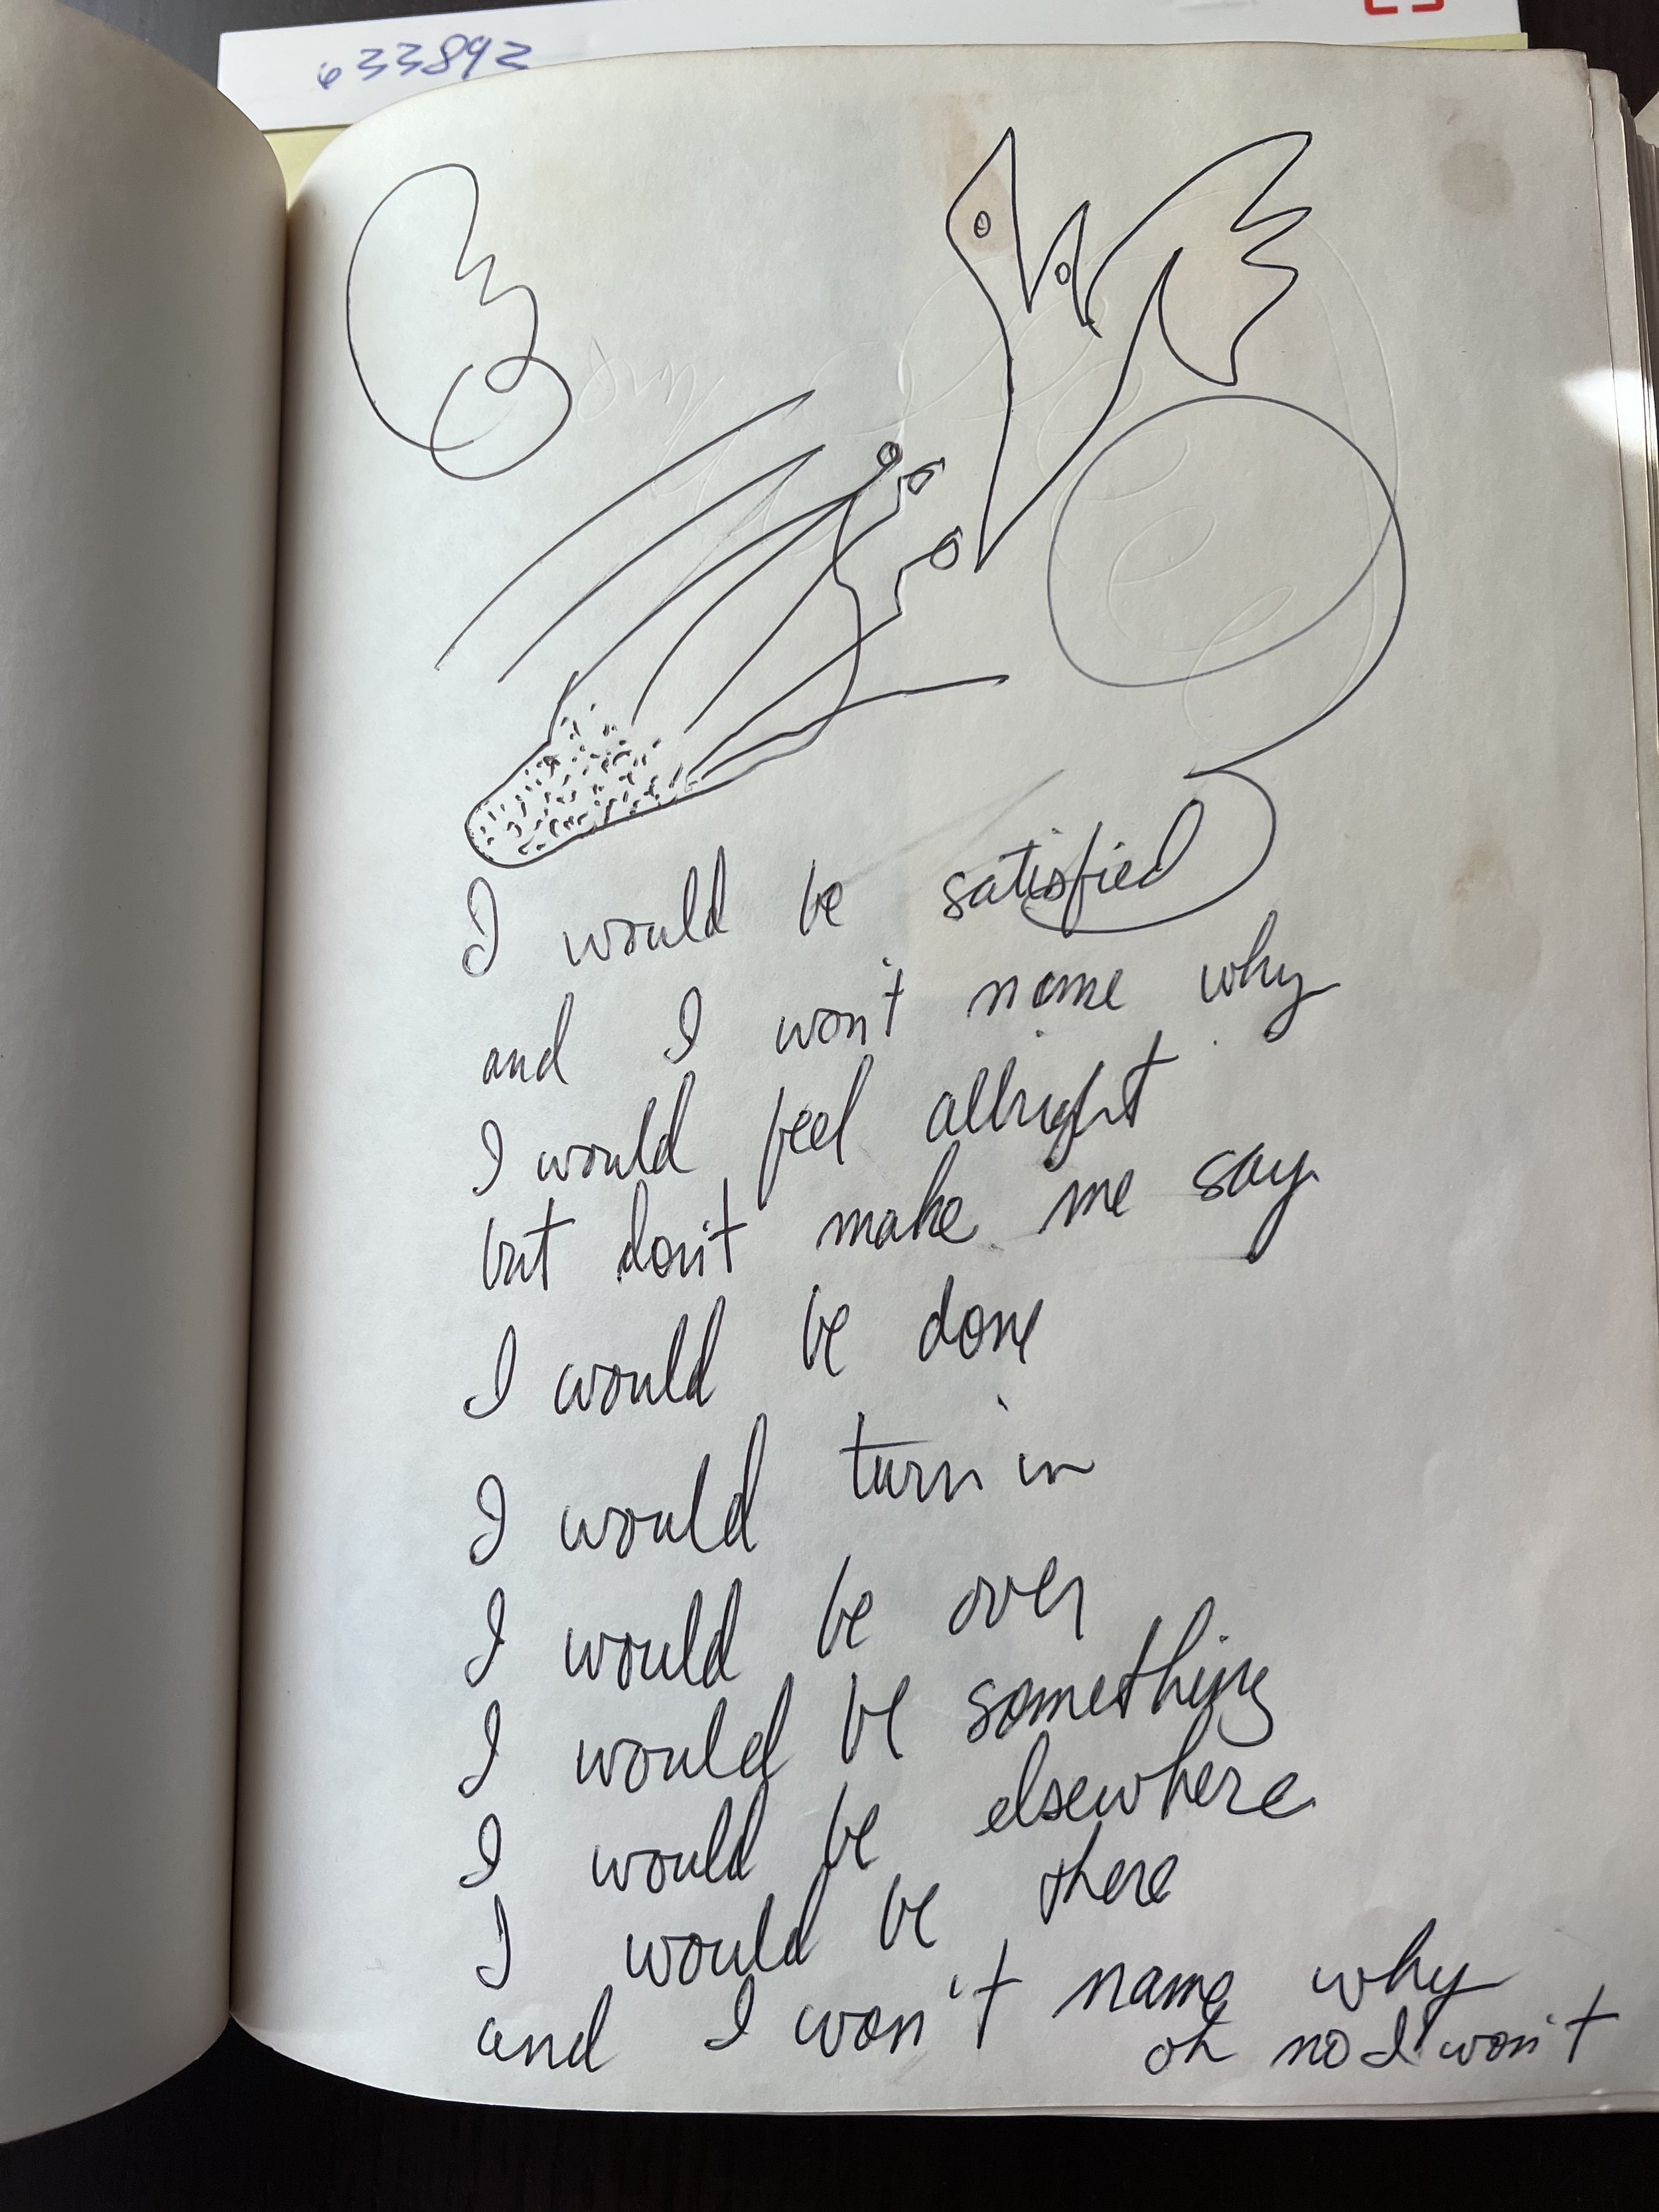 633892
I would be satisfied
and I won't name why
I would feel allright
but don't make me say
I would be done
I would turn in
I would be over
I would be something
I would be elsewhere
I would be there
and I won't name why
oh no I won't